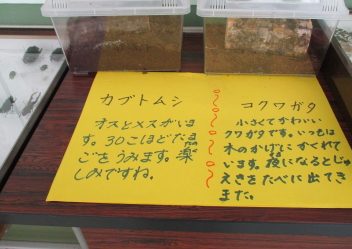 カブトムシ
オスとメスがいま
す。30こほどたま
ごをうみます。楽
しみですね。
コクワガタ
小さくてかわいい
クワガタです。いつもは
木のかげにかくれて
います。夜になるとじゅ
えきをたべに出てき
まだ。